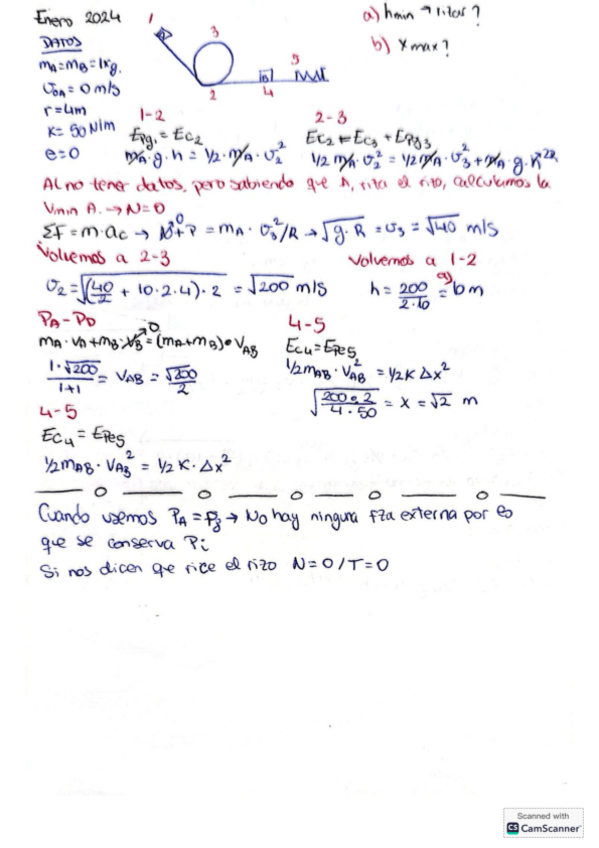 Enero 2024
a) hmin → rizar?
b) Xmax?
DATOS
mA = mB = 1kg.
v0A = 0 m/s
r = 4m
K = 50 N/m
e = 0
1
A
3
2
B
4
5
1-2
Epg1 = Ec2
mA · g · h = 1/2 · mA · v2²
2-3
Ec2 = Ec3 + Epg3
1/2 mA · v2² = 1/2 mA · v3² + mA · g · h 2R
Al no tener datos, pero sabiendo que A, riza el rizo, calculamos la
Vmin A. → N=0
ΣF = m · ac → N + P = mA · v3²/R → √g · R = v3 = √40 m/s
0
Volvemos a 2-3
v2 = √(40/2 + 10 · 2 · 4) · 2 = √200 m/s
Volvemos a 1-2
h = 200/2 · 10 = 10 m
a)
PA - PD
mA · vA + mB · vB = (mA + mB) · VAB
0
1 · √200/1+1 = VAB = √200/2
4-5
Ec4 = Epe5
1/2 mAB · VAB² = 1/2 K Δx²
√200 · 2/4 · 50 = x = √2 m
4-5
Ec4 = Epe5
1/2 mAB · VAB² = 1/2 K · Δx²
Cuando usemos PA = PD → No hay ninguna fza externa por eso
que se conserva P.
Si nos dicen que rice el rizo N=0/T=0
Scanned with
CS CamScanner